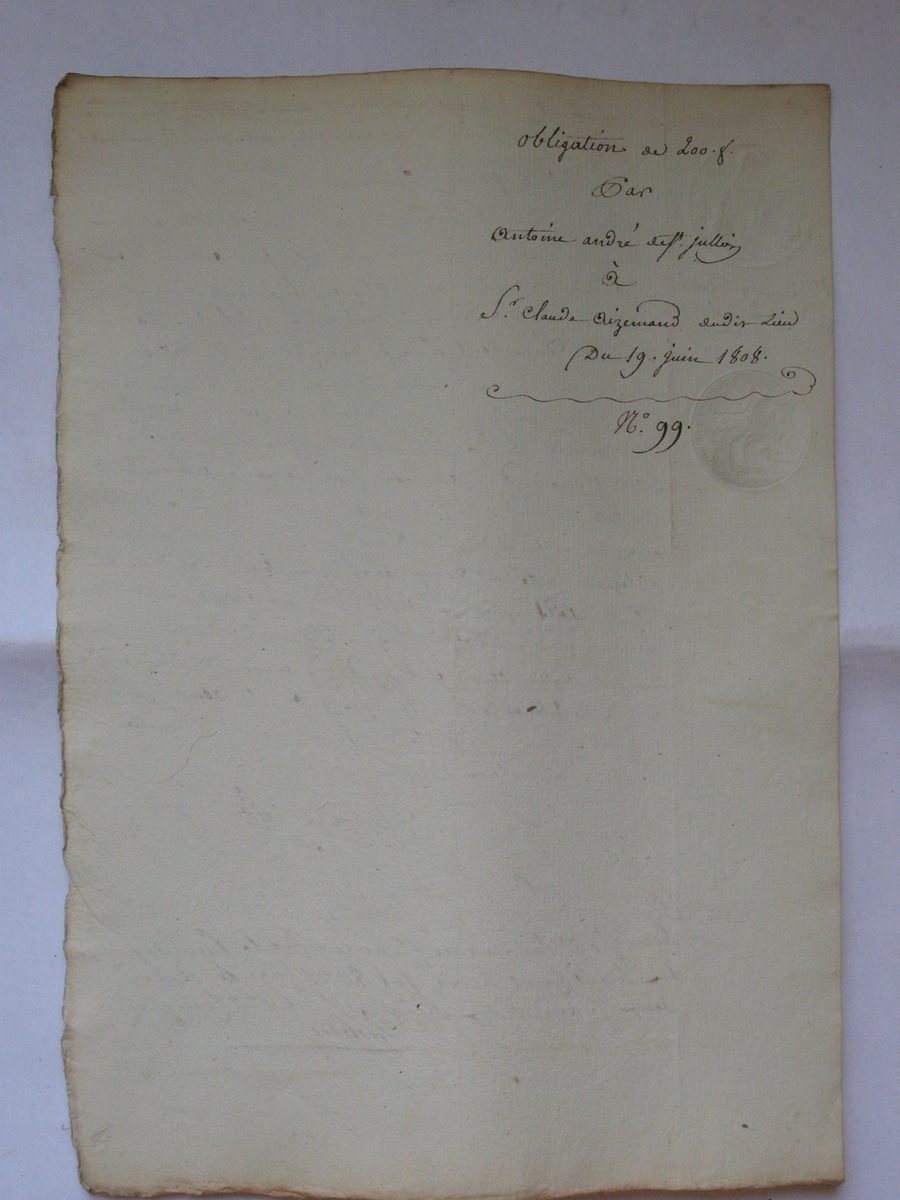 obligation de 200. f.
Par
antoine andré de St. jullien
à
Sr. Claude aizemand dudit Lieu
Du 19. juin 1808.
No. 99.